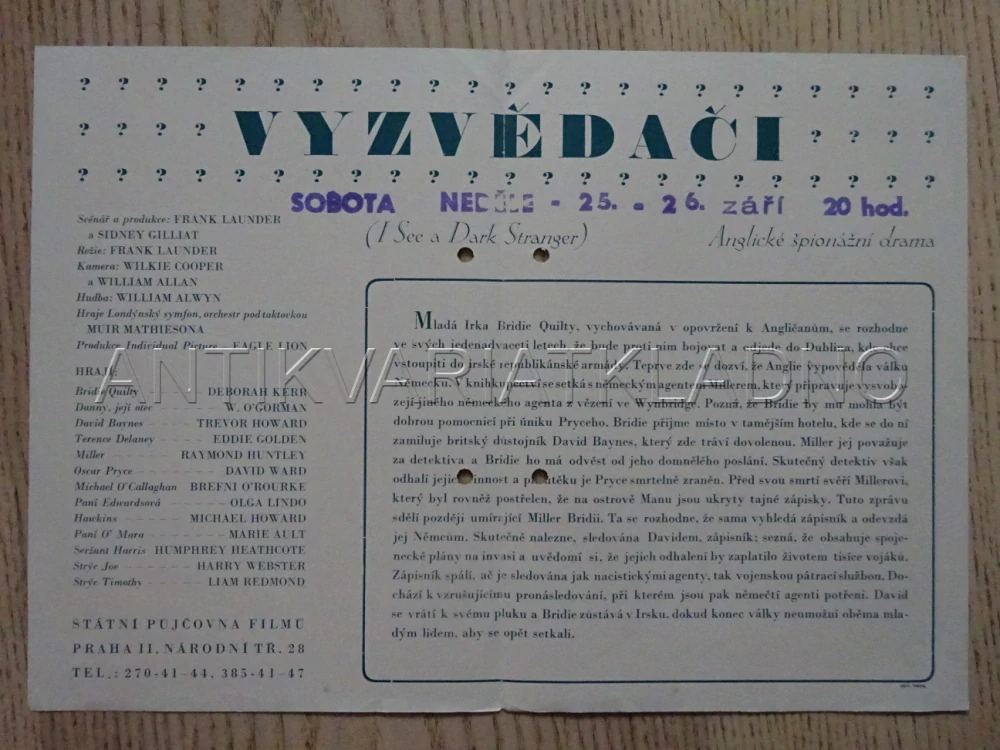 ? ? ? ? ? ? ? ? ? ? ? ? ? ? ? ? ? ? ? ? ? ? ?
? ? ? ? VYZVĚDAČI ? ? ? ?
? ? ? ? ? ? ? ? ? ? ? ? ? ? ? ? ? ? ? ? ? ? ?
SOBOTA NEDĚLE - 25. - 26. září 20 hod.
(I See a Dark Stranger) Anglické špionážní drama
Scénář a produkce: FRANK LAUNDER
a SIDNEY GILLIAT
Režie: FRANK LAUNDER
Kamera: WILKIE COOPER
a WILLIAM ALLAN
Hudba: WILLIAM ALWYN
Hraje Londýnský symfon. orchestr pod taktovkou
MUIR MATHIESONA
Produkce Individual Picture – EAGLE LION
HRAJÍ:
Bridie Quilty DEBORAH KERR
Danny, její otec W. O'GORMAN
David Baynes TREVOR HOWARD
Terence Delaney EDDIE GOLDEN
Miller RAYMOND HUNTLEY
Oscar Pryce DAVID WARD
Michael O'Callaghan BREFNI O'ROURKE
Paní Edwardsová OLGA LINDO
Hawkins MICHAEL HOWARD
Paní O' Mara MARIE AULT
Seržant Harris HUMPHREY HEATHCOTE
Strýc Joe HARRY WEBSTER
Strýc Timothy LIAM REDMOND
STÁTNÍ PŮJČOVNA FILMŮ
PRAHA II, NÁRODNÍ TŘ. 28
TEL.: 270-41-44, 385-41-47
Mladá Irka Bridie Quilty, vychovávaná v opovržení k Angličanům, se rozhodne
ve svých jedenadvaceti letech, že bude proti nim bojovat a odjede do Dublina, kde chce
vstoupiti do irské republikánské armády. Teprve zde se dozví, že Anglie vypověděla válku
Německu. V knihkupectví se setká s německým agentem Millerem, který připravuje vysvobo-
zejí jiného německého agenta z vězení ve Wynbridge. Pozná, že Bridie by mu mohla být
dobrou pomocnicí při úniku Pryceho. Bridie přijme místo v tamějším hotelu, kde se do ní
zamiluje britský důstojník David Baynes, který zde tráví dovolenou. Miller jej považuje
za detektiva a Bridie ho má odvést od jeho domnělého poslání. Skutečný detektiv však
odhalí jejich činnost a při útěku je Pryce smrtelně zraněn. Před svou smrtí svěří Millerovi,
který byl rovněž postřelen, že na ostrově Manu jsou ukryty tajné zápisky. Tuto zprávu
sdělí později umírající Miller Bridii. Ta se rozhodne, že sama vyhledá zápisník a odevzdá
jej Němcům. Skutečně nalezne, sledována Davidem, zápisník; sezná, že obsahuje spoje-
necké plány na invasi a uvědomí si, že jejich odhalení by zaplatilo životem tisíce vojáků.
Zápisník spálí, ač je sledována jak nacistickými agenty, tak vojenskou pátrací službou. Do-
chází k vzrušujícímu pronásledování, při kterém jsou pak němečtí agenti potřeni. David
se vrátí k svému pluku a Bridie zůstává v Irsku, dokud konec války neumožní oběma mla-
dým lidem, aby se opět setkali.
ANTIKVARIATKLADNO